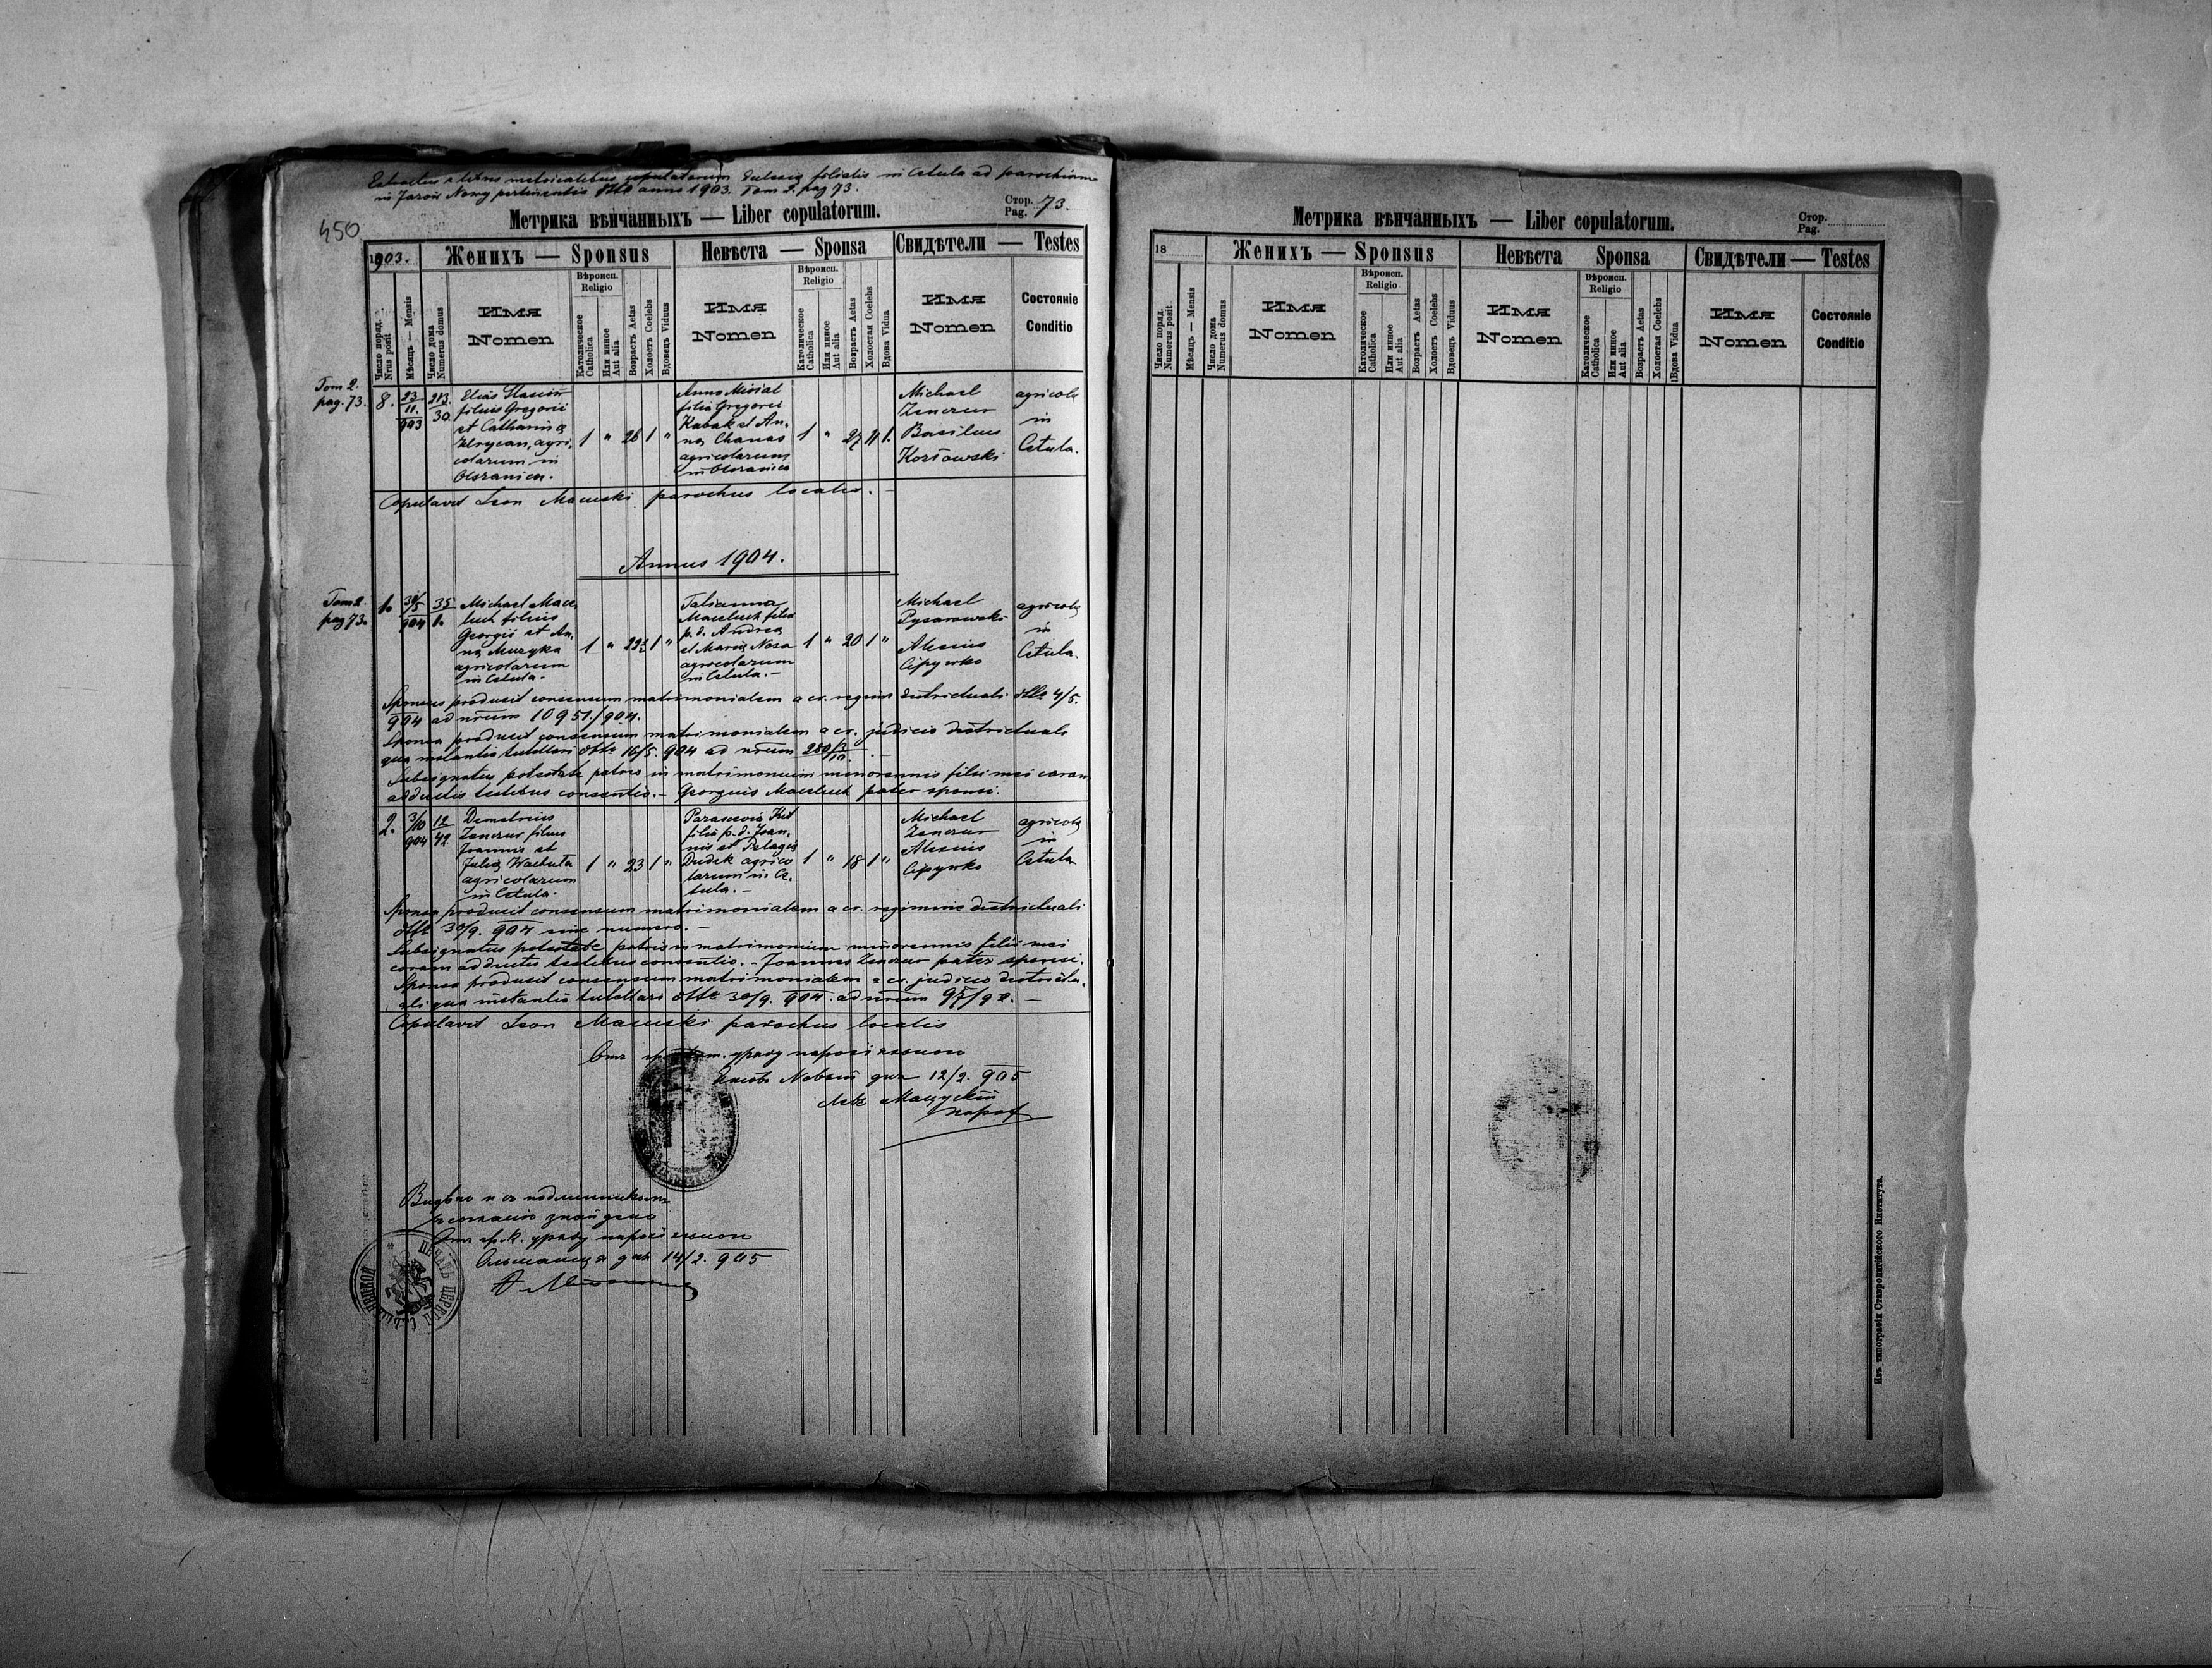 Extractus e libris metricalibus copulatorum Eclesiae filialis in Cetula ad parochiam
in Jazów Nowy pertinentis dtto anno 1903. Tom 2. pag 73.
450
Метрика вѣнчанныхъ — Liber copulatorum.
Стор.
Pag. 73.
1903.
Женихъ — Sponsus
Невѣста — Sponsa
Свидѣтели — Testes
Число поряд.
Nrus posit
Мѣсяцъ — Mensis
Число дома
Numerus domus
Имя
Nomen
Вѣроисп.
Religio
Католическое
Catholica
Или иное
Aut alia
Возрастъ Aetas
Холостъ Coelebs
Вдовець Viduus
Имя
Nomen
Вѣроисп.
Religio
Католическое
Catholica
Или иное
Aut alia
Возрастъ Aetas
Холостая Coelebs
Вдова Vidua
Имя
Nomen
Состояніе
Conditio
Tom 2.
pag. 73.
8.
23
11.
903
213.
30
Elias Stasion
filius Gregorii
et Catharinae
agri-
colarum in
1 " 26 1 "
Anna Misial
filia Gregorii
Kabak et An-
na Chanas
agricolarum
in
1 " 27 1.
Michael
Zenczur
Basilius
Kozłowski
agricolae
in
Cetula.
Copulavit Leon Macuski parochus localis. -
Annus 1904.
Tom 2.
pag 73.
1.
904
35
1.
Michael Mace-
luch filius
Georgii et An-
na Muzyka
agricolarum
in Cetula.
1 " 1 "
Tatianna
Maceluch filia
p. d. Andrea
et Maria Nosa
agricolarum
in Cetula. -
1 " 20 1 "
Michael
Pysarowski
Alexius
Cipywko
agricolae
in
Cetula.
Sponsus produxit consensum matrimonialem a cr. regime districtuali dtto 4/5.
904 ad nrum 10951./904.
Sponsa produxit consensum matrimonialem a cr. judicio districtuali
qua instantia tutellari dtto 16/5. 904 ad nrum
Subsignatus potestate patris in matrimonium minorennis filii mei coram
adductis testibus consentio. - Georgius Maceluch pater sponsi.
2.
3/10
904
12
42
Demetrius
Zenczur filius
Joannis et
Julia Wachuta
agricolarum
in Cetula.
1 " 23 1 "
Parascevia Kut
filia p. d. Joan-
nis et Pelagia
Dudek agrico-
larum in Ce-
tula. -
1 " 18 1 "
Michael
Zenczur
Alexius
Cipywko
agricolae
in
Cetula
Sponsus produxit consensum matrimonialem a cr. regiminis districtuali
dtto 30/9. 904 sine numero. -
Subsignatus potestate patris in matrimonium minorennis filii mei
coram adductis testibus consentio. - Joannes Zenczur pater sponsi.
Sponsa produxit consensum matrimonialem a cr. judicio districtu-
ali qua instantia tutellari dtto 30/9. 904. ad nrum
Copulavit Leon Macuski parochus localis
Отъ гр. кат. уряду парохіяльного
Язовъ Новый дня 12/2. 905
Левъ Мацускій
парох
Видѣно и съ подлинникомъ
согласно знайдено
Отъ гр. к. уряду парохіяльного
Ольшаница дня 14/2. 905
ПЕЧАТЬ ЦЕРКВИ
Метрика вѣнчанныхъ — Liber copulatorum.
Стор.
Pag.
18
Женихъ — Sponsus
Невѣста Sponsa
Свидѣтели — Testes
Число поряд.
Numerus posit
Мѣсяцъ — Mensis
Число дома
Numerus domus
Имя
Nomen
Вѣроисп.
Religio
Католическое
Catholica
Или иное
Aut alia
Возрастъ Aetas
Холостъ Coelebs
Вдовець Viduus
Имя
Nomen
Вѣроисп.
Religio
Католическое
Catholica
Или иное
Aut alia
Возрастъ Aetas
Холостая Coelebs
Вдова Vidua
Имя
Nomen
Состояніе
Conditio
Изъ типографіи Ставропигійского Института.